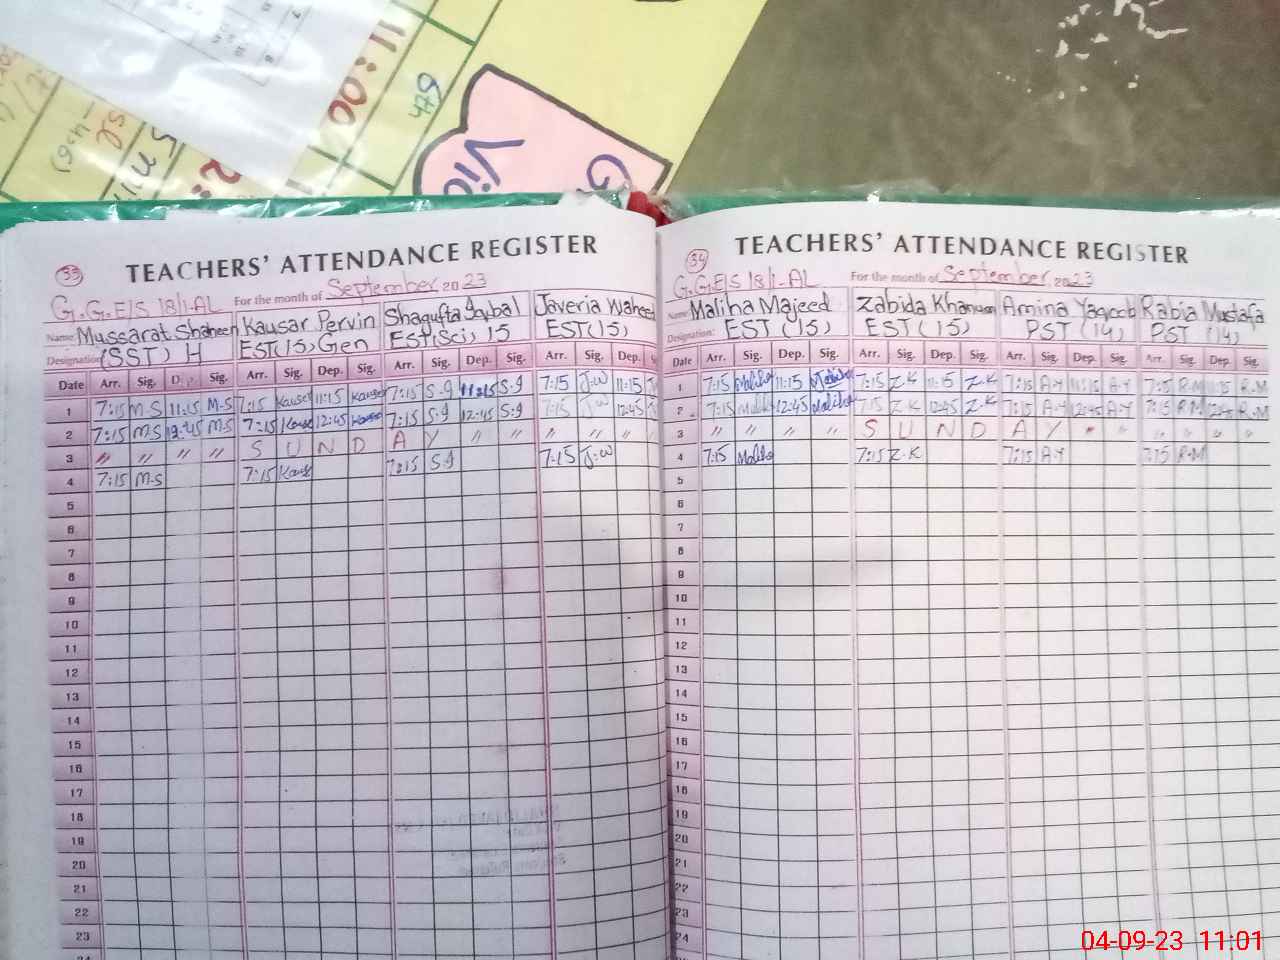 11:00
6th
Vic
G
33
TEACHERS' ATTENDANCE REGISTER
G.G.E/S 18/1-AL For the month of September 2023
Name Mussarat Shaheen Kausar Pervin Shagufta Iqbal Javeria Waheed
Designation (SST) H EST(15) Gen EST(Sci) 15 EST(15)
Date Arr. Sig. Dep. Sig. Arr. Sig. Dep. Sig. Arr. Sig. Dep. Sig. Arr. Sig. Dep. Si
1 7:15 M-S 11:15 M-S 7:15 Kauser 11:15 Kauser 7:15 S-g 11:15 S-g 7:15 J-W 11:15 J
2 7:15 M-S 12:45 M-S 7:15 Kause 12:45 Kause 7:15 S-g 12:45 S-g 7:15 J-W 12:45
3 " " " " S U N D A Y " " " " "
4 7:15 M-S 7:15 Kaus 7:15 S-g 7:15 J-W
5
6
7
8
9
10
11
12
13
14
15
16
17
18
19
20
21
22
23
34
TEACHERS' ATTENDANCE REGISTER
G.G.E/S 18/1-AL For the month of September 2023
Name Maliha Majeed Zabida Khanum Amina Yaqoob Rabia Mustafa
Designation: EST (15) EST (15) PST (14) PST (14)
Date Arr. Sig. Dep. Sig. Arr. Sig. Dep. Sig. Arr. Sig. Dep. Sig. Arr. Sig. Dep. Sig.
1 7:15 Maliha 11:15 Maliha 7:15 Z-K 11:15 Z-K 7:15 A-Y 11:15 A-Y 7:15 R-M 11:15 R-M
2 7:15 Malih 12:45 Maliha 7:15 Z-K 12:45 Z-K 7:15 A-Y 12:45 A-Y 7:15 R-M 12:45 R-M
3 " " " " S U N D A Y " " " " " "
4 7:15 Maliha 7:15 Z-K 7:15 A-Y 7:15 R-M
5
6
7
8
9
10
11
12
13
14
15
16
17
18
19
20
21
22
23
24
04-09-23 11:01